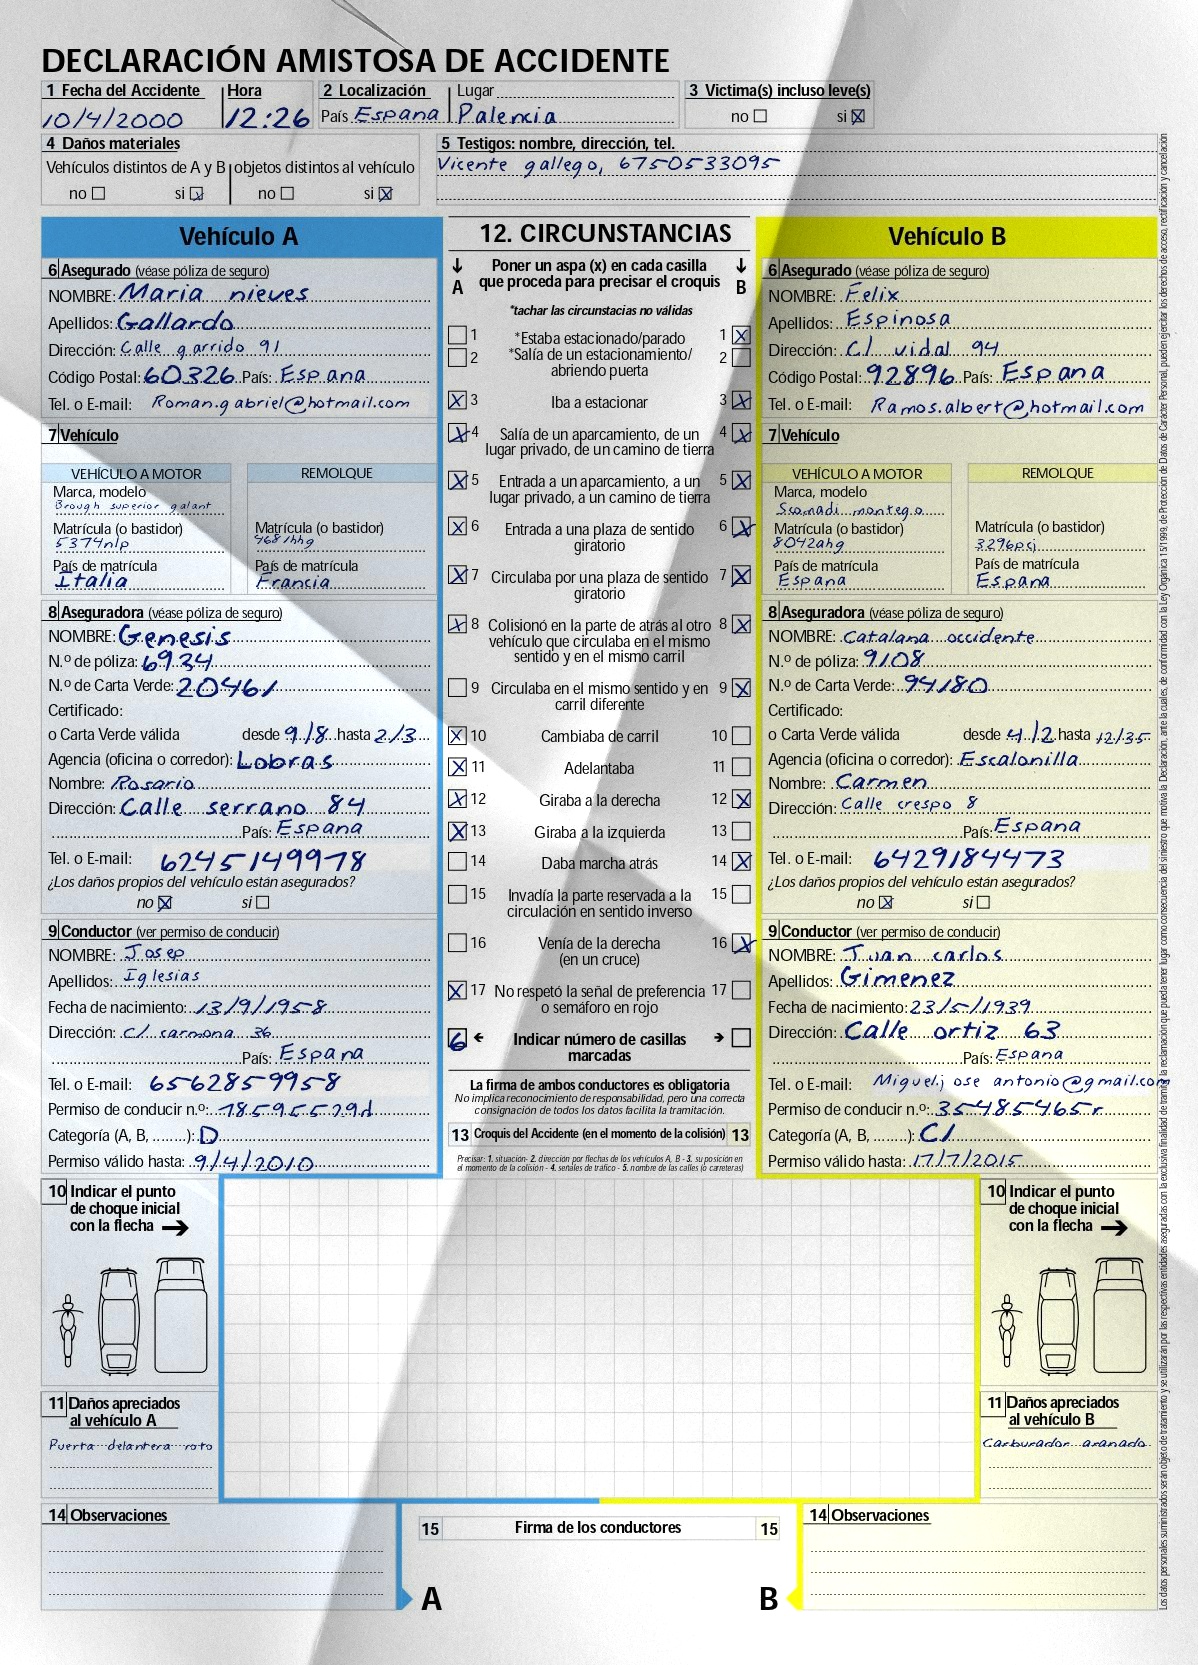 DECLARACIÓN AMISTOSA DE ACCIDENTE
1 Fecha del Accidente Hora 2 Localización Lugar 3 Victima(s) incluso leve(s)
10/4/2000 12:26 País Espana Palencia no si X
4 Daños materiales 5 Testigos: nombre, dirección, tel.
Vehículos distintos de A y B objetos distintos al vehículo Vicente gallego, 6750533095
no si X no si X
Vehículo A
6 Asegurado (véase póliza de seguro)
NOMBRE: Maria nieves
Apellidos: Gallardo
Dirección: Calle garrido 91
Código Postal: 60326 País: Espana
Tel. o E-mail: Roman.gabriel@hotmail.com
7 Vehículo
VEHÍCULO A MOTOR REMOLQUE
Marca, modelo
Brough superior galant
Matrícula (o bastidor) Matrícula (o bastidor)
5374nlp 4681hhg
País de matrícula País de matrícula
Italia Francia
8 Aseguradora (véase póliza de seguro)
NOMBRE: Genesis
N.º de póliza: 6934
N.º de Carta Verde: 20461
Certificado:
o Carta Verde válida desde 9/8 hasta 2/3
Agencia (oficina o corredor): Lobras
Nombre: Rosario
Dirección: Calle serrano 84
País: Espana
Tel. o E-mail: 6245149978
¿Los daños propios del vehículo están asegurados?
no X si
9 Conductor (ver permiso de conducir)
NOMBRE: Josep
Apellidos: Iglesias
Fecha de nacimiento: 13/9/1958
Dirección: C/ carmona 36
País: Espana
Tel. o E-mail: 6562859958
Permiso de conducir n.º: 78595529d
Categoría (A, B, ........): D
Permiso válido hasta: 9/4/2010
12. CIRCUNSTANCIAS
A Poner un aspa (x) en cada casilla que proceda para precisar el croquis B
*tachar las circunstacias no válidas
1 *Estaba estacionado/parado 1 X
2 *Salía de un estacionamiento/ 2
abriendo puerta
X 3 Iba a estacionar 3 X
X 4 Salía de un aparcamiento, de un 4 X
lugar privado, de un camino de tierra
X 5 Entrada a un aparcamiento, a un 5 X
lugar privado, a un camino de tierra
X 6 Entrada a una plaza de sentido 6 X
giratorio
X 7 Circulaba por una plaza de sentido 7 X
giratorio
X 8 Colisionó en la parte de atrás al otro 8 X
vehículo que circulaba en el mismo
sentido y en el mismo carril
9 Circulaba en el mismo sentido y en 9 X
carril diferente
X 10 Cambiaba de carril 10
X 11 Adelantaba 11
X 12 Giraba a la derecha 12 X
X 13 Giraba a la izquierda 13
14 Daba marcha atrás 14 X
15 Invadía la parte reservada a la 15
circulación en sentido inverso
16 Venía de la derecha 16 X
(en un cruce)
X 17 No respetó la señal de preferencia 17
o semáforo en rojo
6 Indicar número de casillas
marcadas
La firma de ambos conductores es obligatoria
No implica reconocimiento de responsabilidad, pero una correcta
consignación de todos los datos facilita la tramitación.
13 Croquis del Accidente (en el momento de la colisión) 13
Precisar: 1. situación- 2. dirección por flechas de los vehículos A, B - 3. su posición en
el momento de la colisión - 4. señales de tráfico - 5. nombre de las calles (o carreteras)
Vehículo B
6 Asegurado (véase póliza de seguro)
NOMBRE: Felix
Apellidos: Espinosa
Dirección: C/ vidal 94
Código Postal: 92896 País: Espana
Tel. o E-mail: Ramos.albert@hotmail.com
7 Vehículo
VEHÍCULO A MOTOR REMOLQUE
Marca, modelo
Scomadi montego
Matrícula (o bastidor) Matrícula (o bastidor)
8042ahg 3296pcj
País de matrícula País de matrícula
Espana Espana
8 Aseguradora (véase póliza de seguro)
NOMBRE: Catalana occidente
N.º de póliza: 9108
N.º de Carta Verde: 94180
Certificado:
o Carta Verde válida desde 4/2 hasta 12/35
Agencia (oficina o corredor): Escalonilla
Nombre: Carmen
Dirección: Calle crespo 8
País: Espana
Tel. o E-mail: 6429184473
¿Los daños propios del vehículo están asegurados?
no X si
9 Conductor (ver permiso de conducir)
NOMBRE: Juan carlos
Apellidos: Gimenez
Fecha de nacimiento: 23/5/1939
Dirección: Calle ortiz 63
País: Espana
Tel. o E-mail: Miguel.jose antonio@gmail.com
Permiso de conducir n.º: 35485465r
Categoría (A, B, ........): C1
Permiso válido hasta: 17/7/2015
10 Indicar el punto
de choque inicial
con la flecha
11 Daños apreciados
al vehículo A
Puerta delantera roto
10 Indicar el punto
de choque inicial
con la flecha
11 Daños apreciados
al vehículo B
Carburador aranado
14 Observaciones
15 Firma de los conductores 15
A B
14 Observaciones